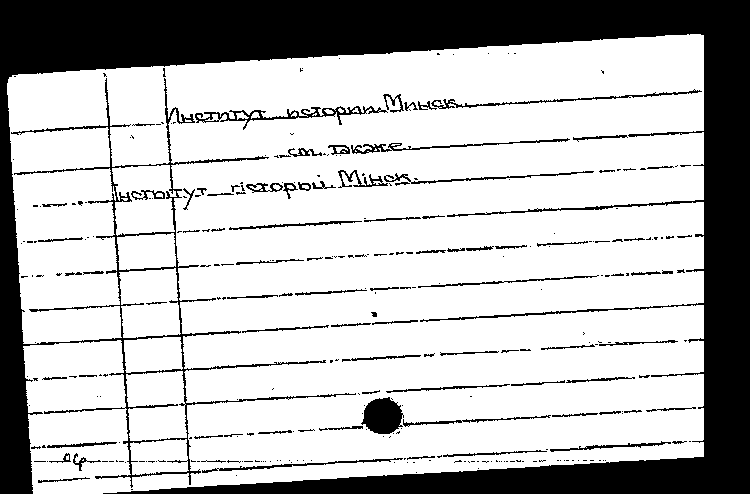 Институт истории. Минск.
см. также.
Інстытут гісторыі. Мінск.